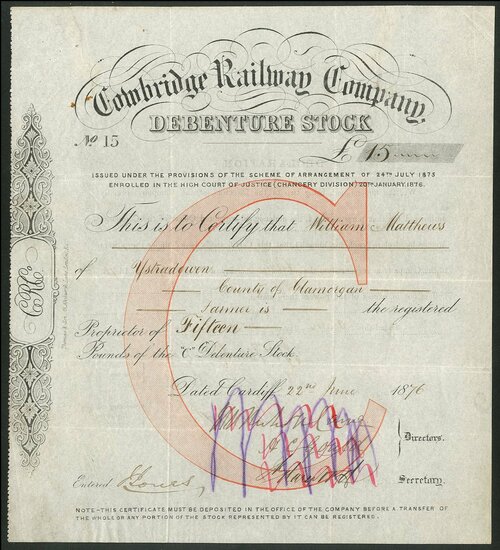 Cowbridge Railway Company.
DEBENTURE STOCK
No 15
£ 15
ISSUED UNDER THE PROVISIONS OF THE SCHEME OF ARRANGEMENT OF 24TH JULY 1875
ENROLLED IN THE HIGH COURT OF JUSTICE (CHANCERY DIVISION) 20TH JANUARY, 1876.
This is to Certify that William Matthews
of Ystradowen
County of Glamorgan
Farmer is the registered
Proprietor of Fifteen
Pounds of the "C" Debenture Stock.
Dated Cardiff 22nd June 1876
Directors.
Entered Jones Secretary.
NOTE – THIS CERTIFICATE MUST BE DEPOSITED IN THE OFFICE OF THE COMPANY BEFORE A TRANSFER OF
THE WHOLE OR ANY PORTION OF THE STOCK REPRESENTED BY IT CAN BE REGISTERED.
C